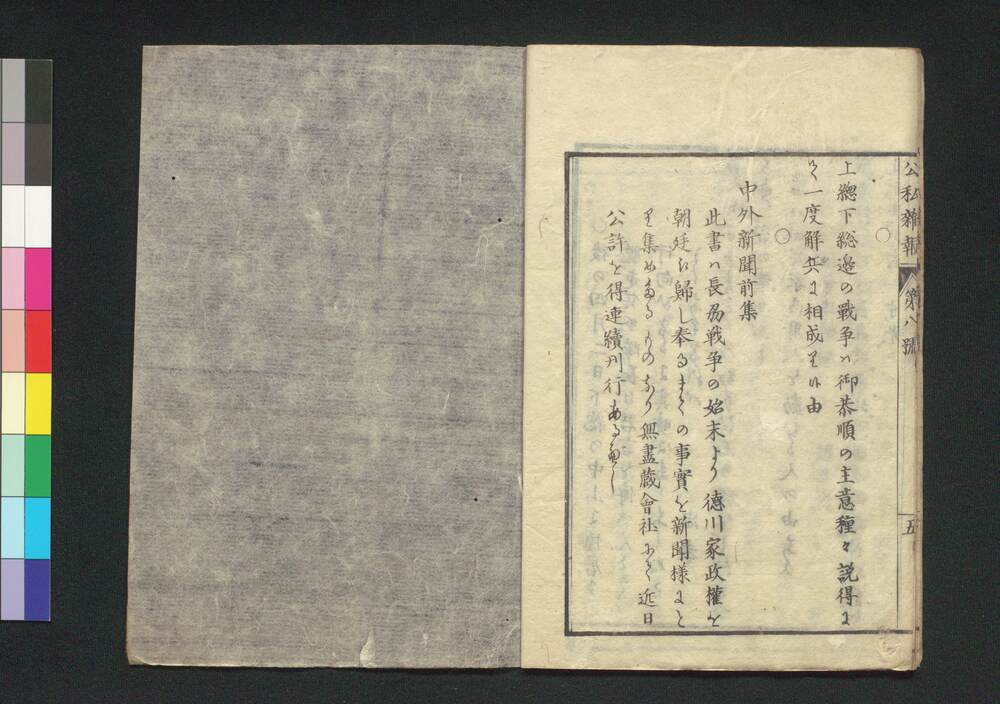 公私雑報 第八號 五
○
上總下総邊の戰争ハ御恭順の主意種々説得に
て一度解兵に相成り候由
○
中外新聞前集
此書ハ長州戦争の始末より徳川家政權を
朝廷に歸し奉るまての事實を新聞様にと
り集めたるものあり無盡蔵會社にて近日
公許を得連續刋行あるべし